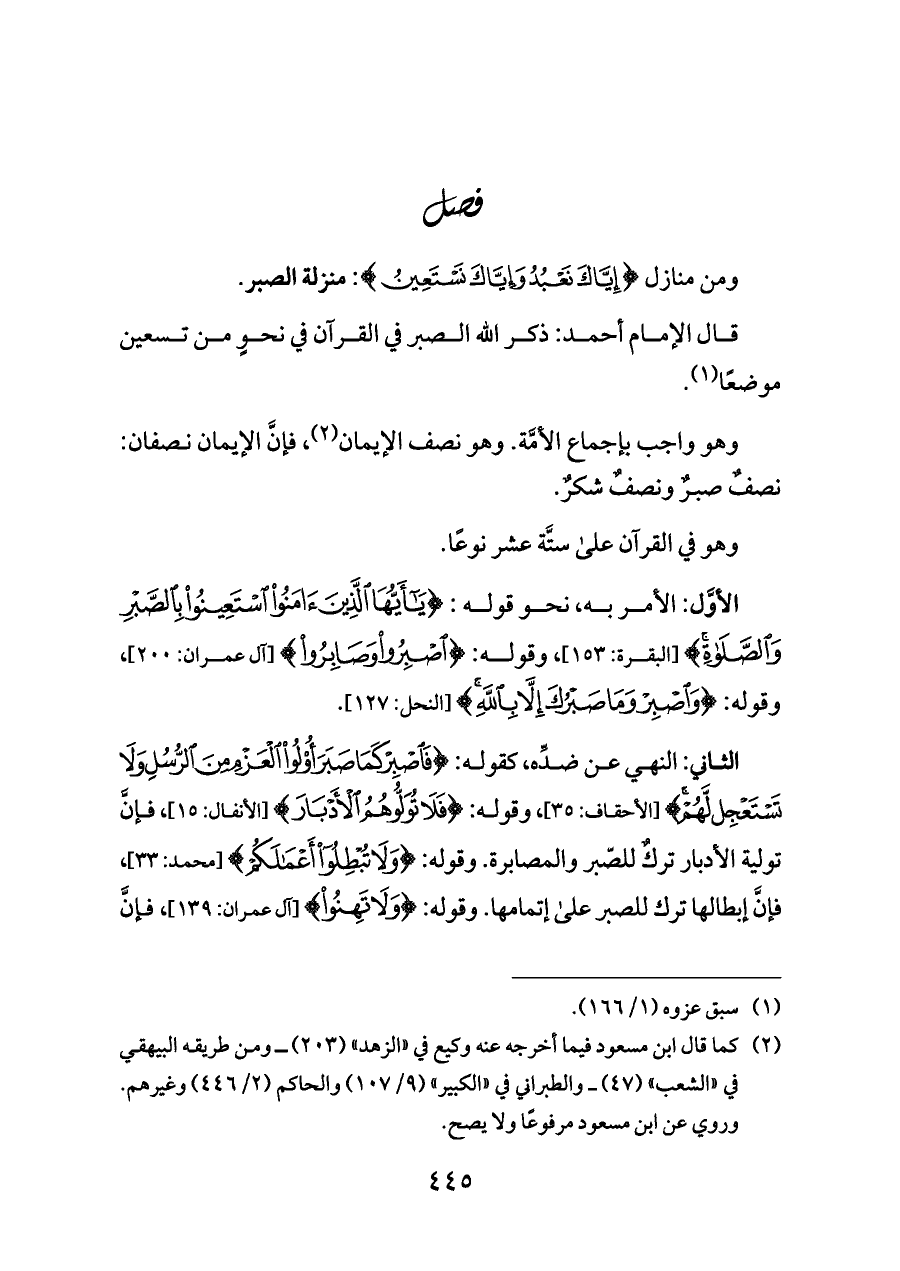 فصل
ومن منازل ﴿إِيَّاكَ نَعْبُدُ وَإِيَّاكَ نَسْتَعِينُ﴾: منزلة الصبر.
قال الإمام أحمد: ذكر الله الصبر في القرآن في نحوٍ من تسعين
موضعًا(١).
وهو واجب بإجماع الأمَّة. وهو نصف الإيمان(٢)، فإنَّ الإيمان نصفان:
نصفٌ صبرٌ ونصفٌ شكرٌ.
وهو في القرآن علىٰ ستَّة عشر نوعًا.
الأوَّل: الأمر به، نحو قوله: ﴿يَٰٓأَيُّهَا ٱلَّذِينَ ءَامَنُواْ ٱسْتَعِينُواْ بِٱلصَّبْرِ
وَٱلصَّلَوٰةِۚ﴾ [البقرة: ١٥٣]، وقوله: ﴿ٱصْبِرُواْ وَصَابِرُواْ﴾ [آل عمران: ٢٠٠]،
وقوله: ﴿وَٱصْبِرْ وَمَا صَبْرُكَ إِلَّا بِٱللَّهِۚ﴾ [النحل: ١٢٧].
الثاني: النهي عن ضدِّه، كقوله: ﴿فَٱصْبِرْ كَمَا صَبَرَ أُوْلُواْ ٱلْعَزْمِ مِنَ ٱلرُّسُلِ وَلَا
تَسْتَعْجِل لَّهُمْۚ﴾ [الأحقاف: ٣٥]، وقوله: ﴿فَلَا تُوَلُّوهُمُ ٱلْأَدْبَارَ﴾ [الأنفال: ١٥]، فإنَّ
تولية الأدبار تركٌ للصّبر والمصابرة. وقوله: ﴿وَلَا تُبْطِلُوٓاْ أَعْمَٰلَكُمْ﴾ [محمد: ٣٣]،
فإنَّ إبطالها ترك للصبر علىٰ إتمامها. وقوله: ﴿وَلَا تَهِنُواْ﴾ [آل عمران: ١٣٩]، فإنَّ
(١) سبق عزوه (١/ ١٦٦).
(٢) كما قال ابن مسعود فيما أخرجه عنه وكيع في «الزهد» (٢٠٣) ـ ومن طريقه البيهقي
في «الشعب» (٤٧) ـ والطبراني في «الكبير» (٩/ ١٠٧) والحاكم (٢/ ٤٤٦) وغيرهم.
وروي عن ابن مسعود مرفوعًا ولا يصح.
٤٤٥